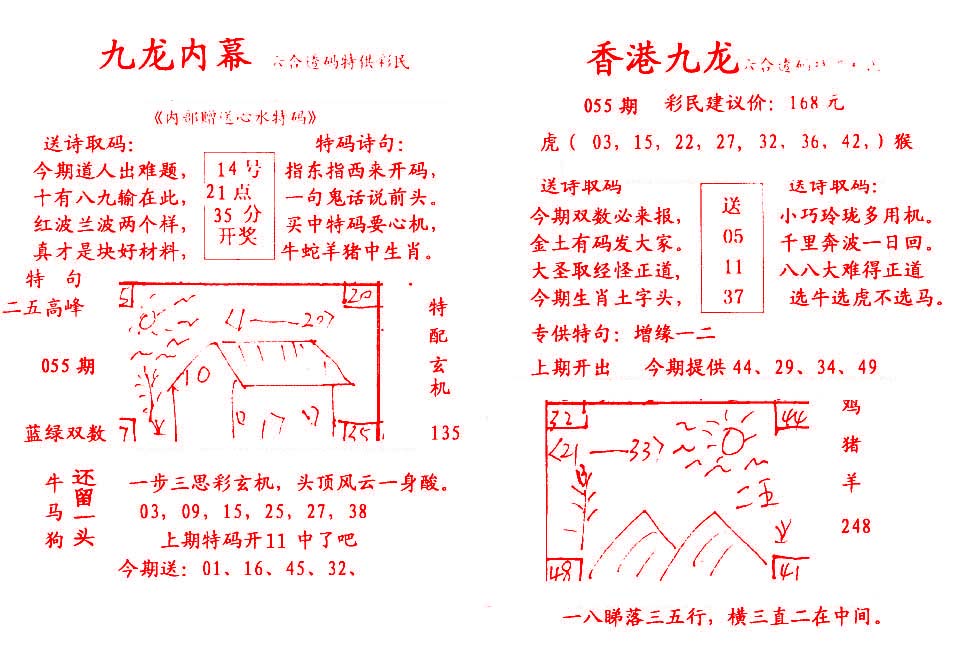 九龙内幕 六合透码特供彩民
《内部赠送心水特码》
送诗取码：
今期道人出难题，
十有八九输在此，
红波兰波两个样，
真才是块好材料，
14号
21点
35分
开奖
特码诗句：
指东指西来开码，
一句鬼话说前头。
买中特码要心机，
牛蛇羊猪中生肖。
特 句
二五高峰
055期
蓝绿双数
5
20
〈1——20〉
10
7
35
特
配
玄
机
135
牛
马
狗
还
留
一
头
一步三思彩玄机，头顶风云一身酸。
03，09，15，25，27，38
上期特码开11 中了吧
今期送：01、16、45、32、
香港九龙 六合透码
055期 彩民建议价：168元
虎（ 03，15，22，27，32，36，42，）猴
送诗取码
今期双数必来报，
金土有码发大家。
大圣取经怪正道，
今期生肖土字头，
送
05
11
37
送诗取码：
小巧玲珑多用机。
千里奔波一日回。
八八大难得正道
选牛选虎不选马。
专供特句：增缘一二
上期开出 今期提供44、29、34、49
32
44
〈21——33〉
二五
48
41
鸡
猪
羊
248
一八睇落三五行，横三直二在中间。